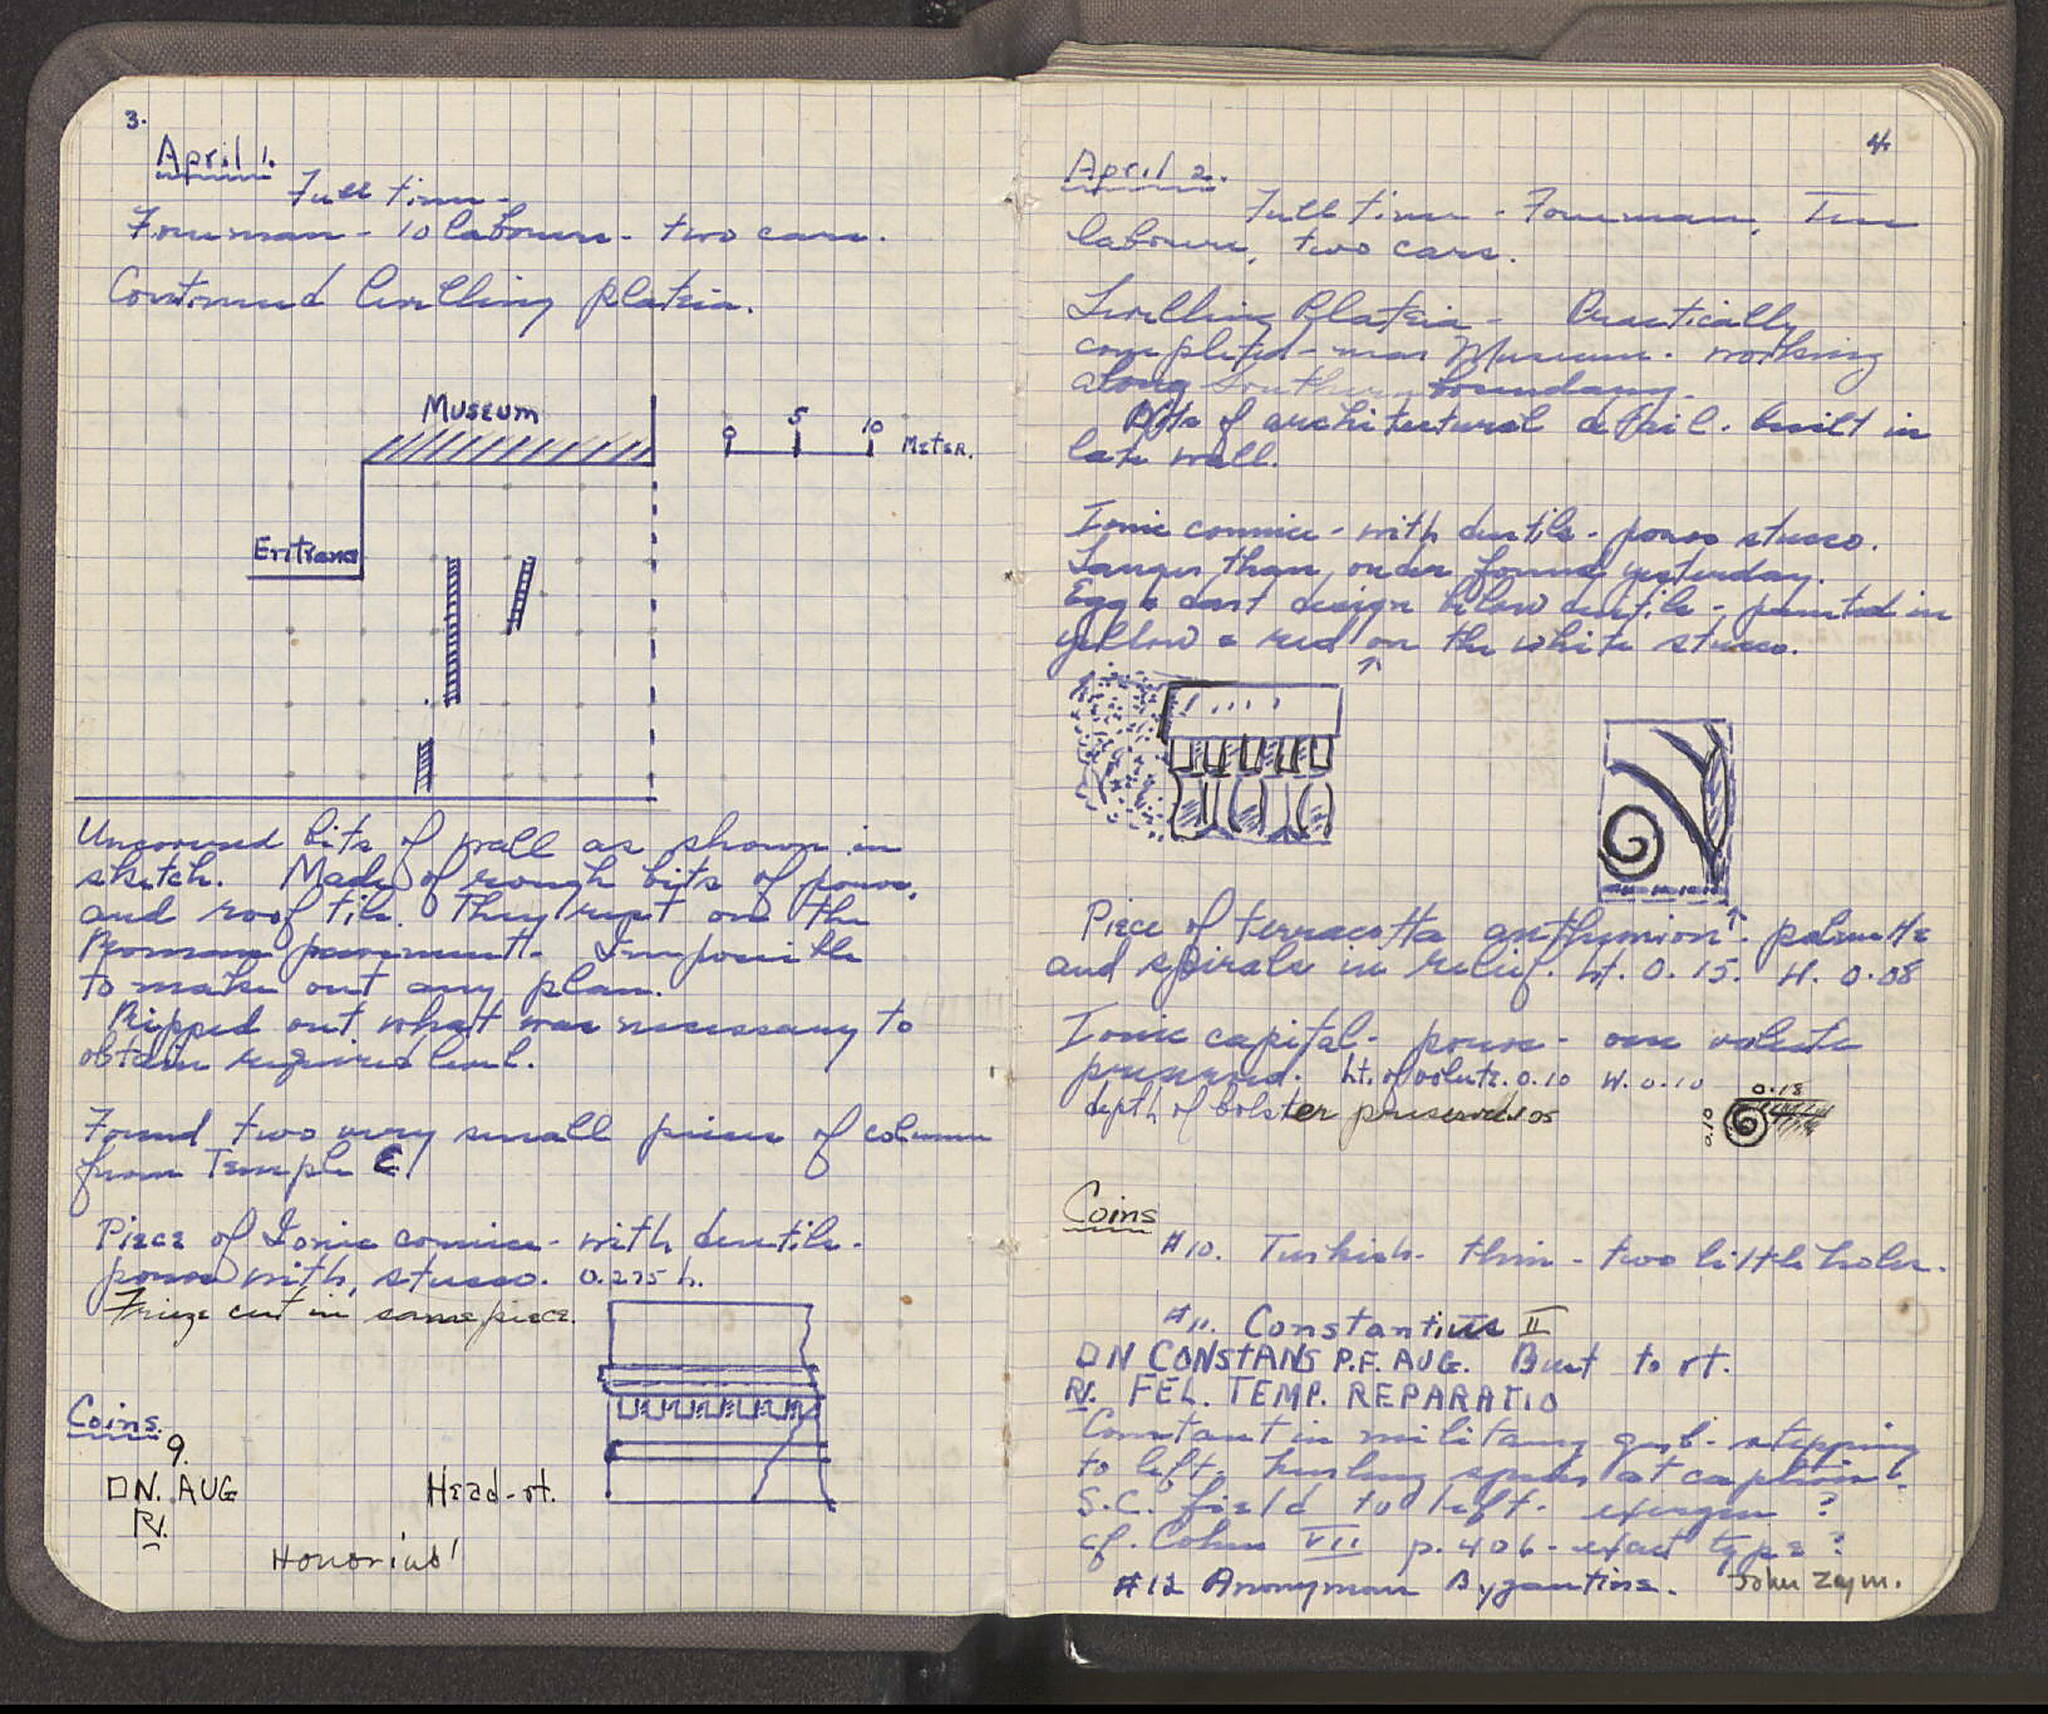 3.
April 1.
Full time-
Foreman - 10 labourers - two cars.
Continued levelling plateia.
Museum
0 5 10 Meter.
Entrance
Uncovered bits of wall as shown in
sketch. Made of rough bits of poros,
and roof tile. They rest on the
Roman pavement. Impossible
to make out any plan.
Ripped out what was necessary to
obtain required level.
Found two very small pieces of column
from Temple C
Piece of Ionic cornice - with dentils.
poros with stucco. 0.275 h.
Frieze cut in same piece.
Coins.
9.
DN. AUG Head-rt.
RV.
Honorius
4.
April 2.
Full time - Foreman, Ten
labourers, two cars.
Levelling Plateia - Practically
completed - near Museum. working
along Southern boundary.
Bits of architectural detail. built in
late wall.
Ionic cornice - with dentils - poros stucco.
Larger than order found yesterday.
Egg & dart design below dentils - painted in
yellow & red on the white stucco.
Piece of terracotta anthemion. palmette
and spirals in relief. ht. 0.15. W. 0.08
Ionic capital - poros - one volute
preserved. ht. of volute. 0.10 W. 0.10
depth of bolster preserved 05
0.18
0.10
Coins
#10. Turkish - thin - two little holes.
#11. Constantius II
DN CONSTANS P.F. AUG. Bust to rt.
RV. FEL. TEMP. REPARATIO
Constant in military garb - stepping
to left, hurling spear at captive.
S.C. field to left. exergue ?
cf. Cohen VII p. 406 - exact type ?
#12 Anonymous Byzantine. John Zym.